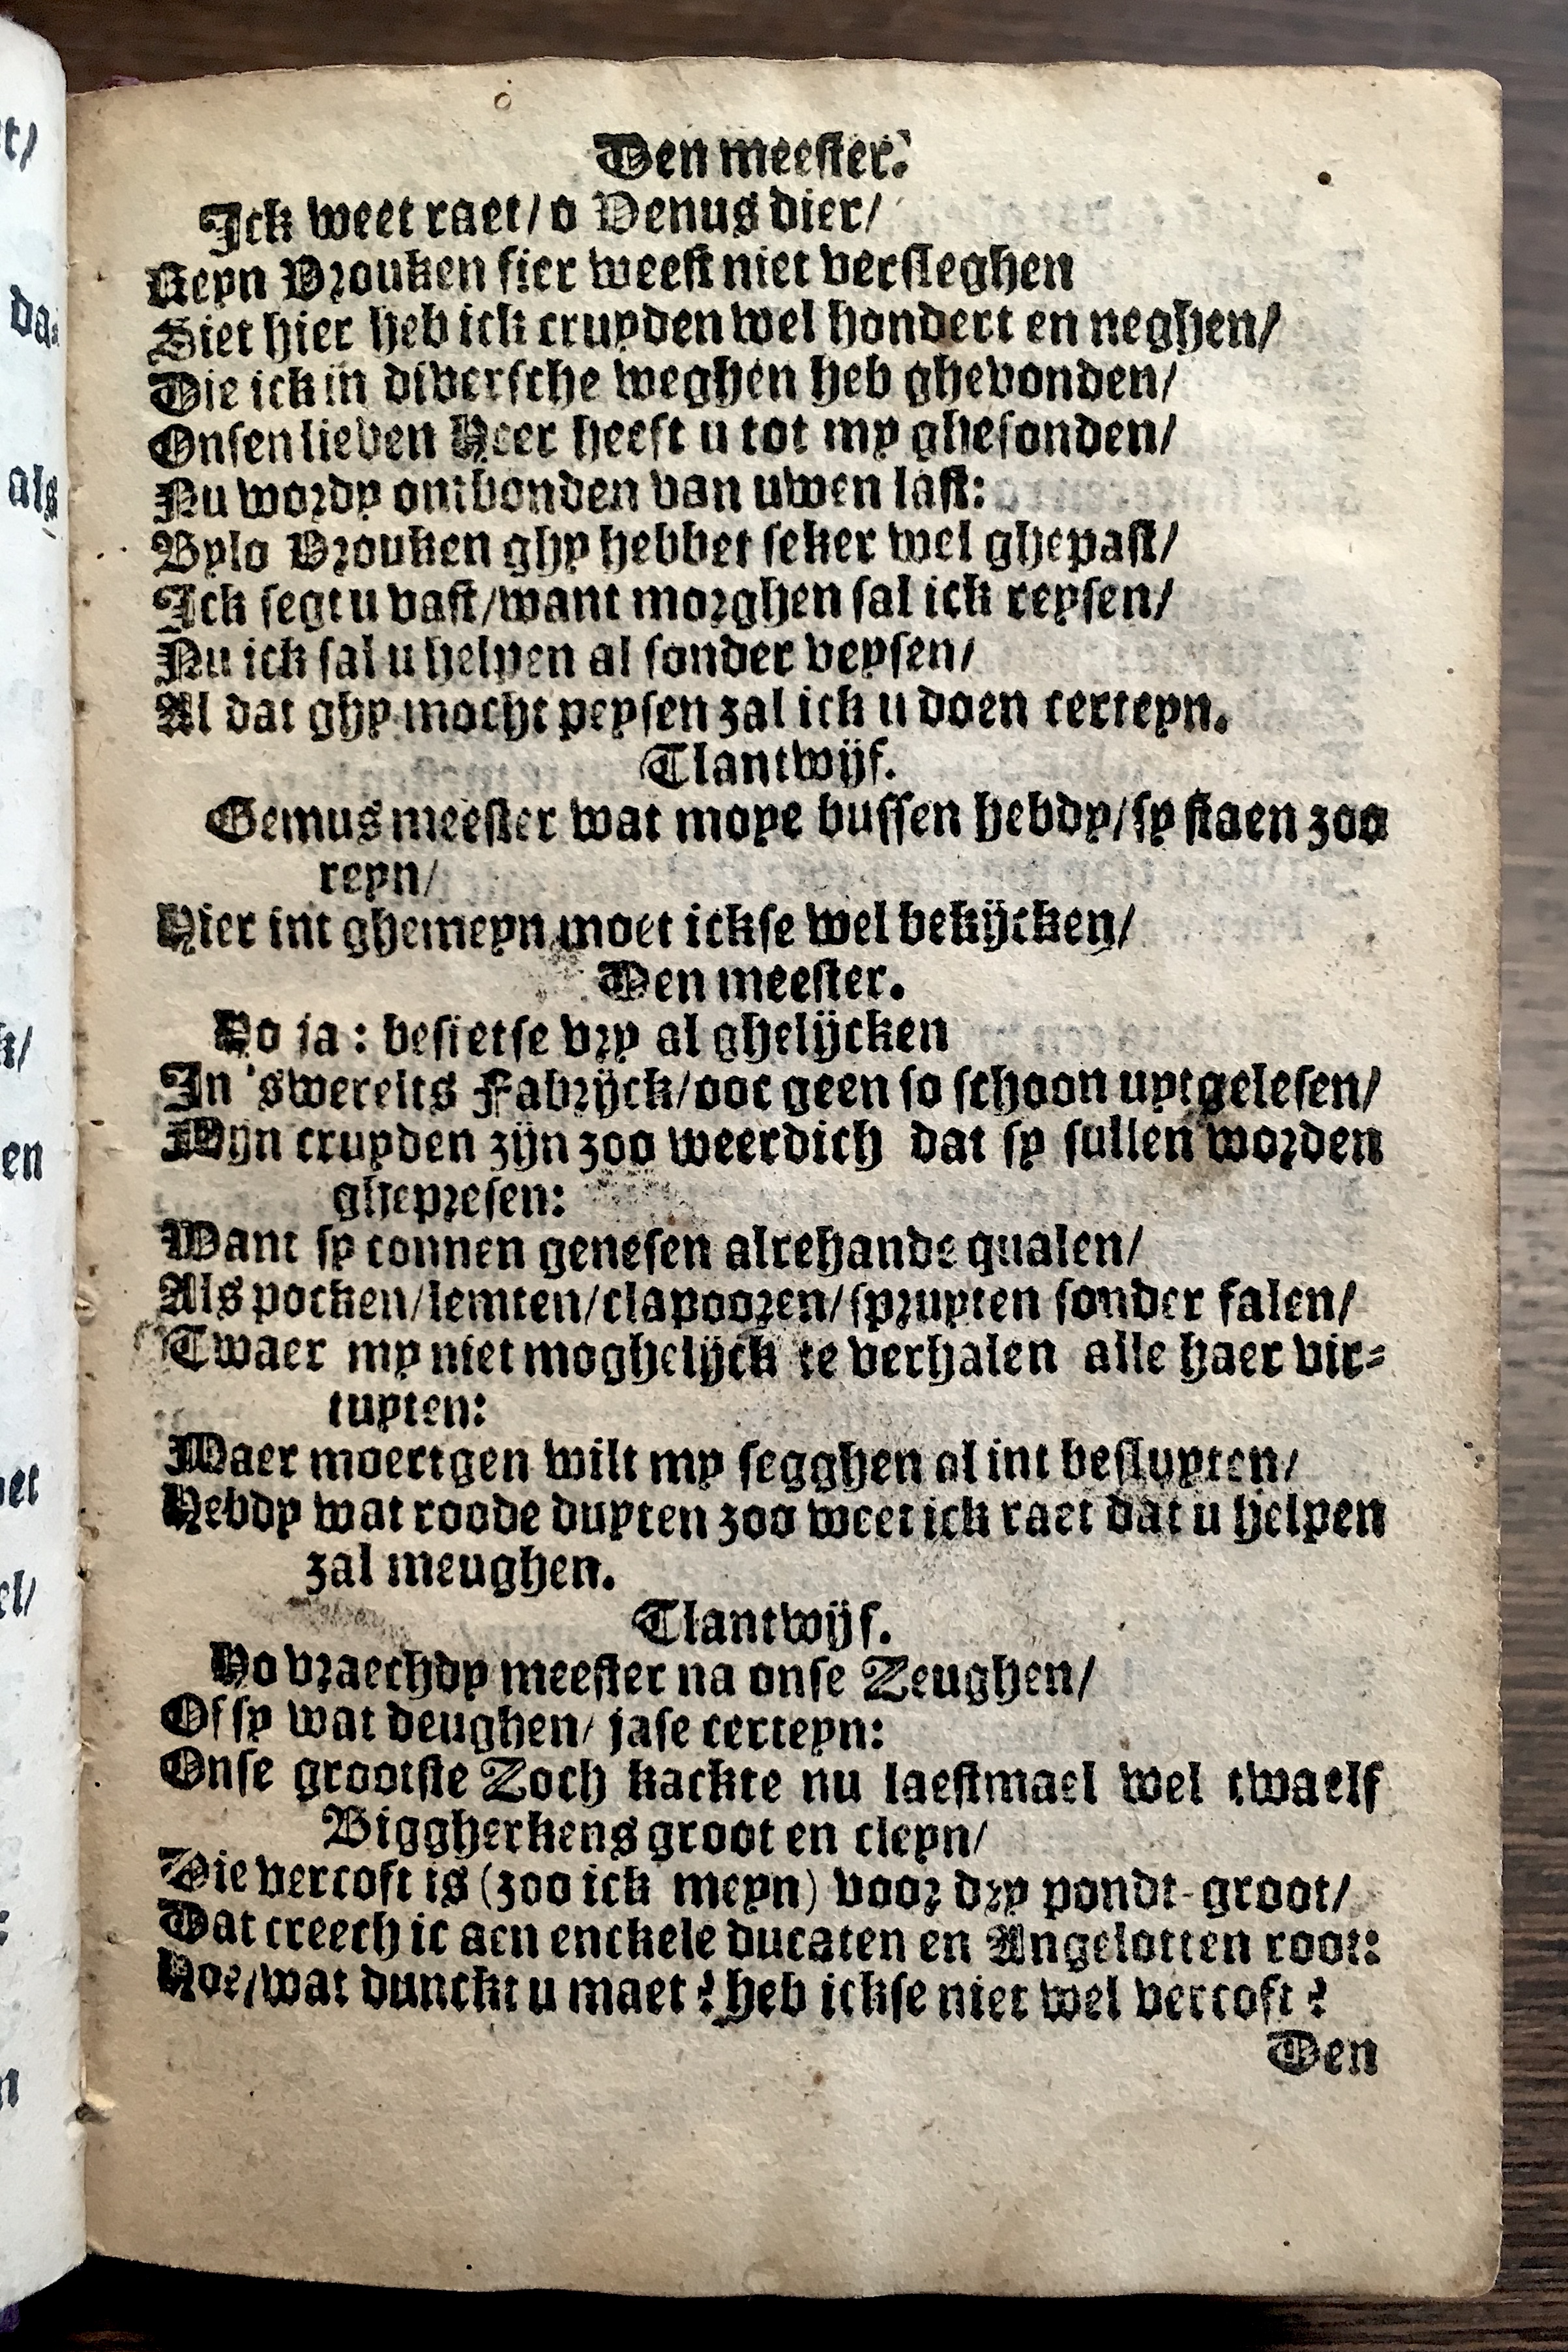 Den meester.
Ick weet raet/ o Venus dier/
Reyn Vrouken fier weest niet versleghen
Siet hier heb ick cruyden wel hondert en neghen/
Die ick in diversche weghen heb ghevonden/
Onsen lieven Heer heeft u tot my ghesonden/
Nu wordy ontbonden van uwen last:
Bylo Vrouken ghy hebbet seker wel ghepast/
Ick segt u vast/want morghen sal ick reysen/
Nu ick sal u helpen al sonder veysen/
Al dat ghy mocht peysen zal ick u doen certeyn.
Tlantwijf.
Gemus meester wat moye bussen hebdy/sy staen zoo
reyn/
Hier int ghemeyn moet ickse wel bekijcken/
Den meester.
Ho ja : besietse vry al ghelijcken
In 'swerelts Fabrijck/ooc geen so schoon uytgelesen/
Mijn cruyden zijn zoo weerdich dat sy sullen worden
ghepresen:
Want sy connen genesen alrehande qualen/
Als pocken/lemten/clapooren/spruyten sonder falen/
Twaer my niet moghelijck te verhalen alle haer vir=
tuyten:
Maer moertgen wilt my segghen al int besluyten/
Hebdy wat roode duyten zoo weet ick raet dat u helpen
zal meughen.
Tlantwijf.
Ho vraechdy meester na onse Zeughen/
Of sy wat deughen/ jase certeyn:
Onse grootste Zoch kackte nu laestmael wel twaelf
Biggherkens groot en cleyn/
Die vercoft is (zoo ick meyn) voor dry pondt-groot/
Dat creech ic aen enckele ducaten en Angelotten root:
Hoe/wat dunckt u maet? heb ickse niet wel vercoft?
Den
t/
da
als
k/
en
el/
n